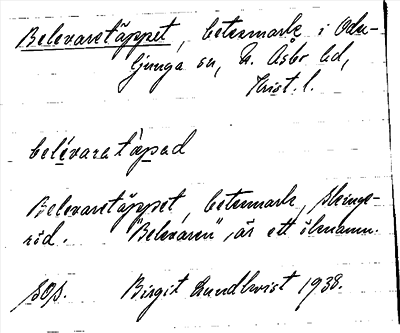 Belevaretäppet, betesmark i Ode-
ljunga sn, N. Åsbo hd,
Krist. l.
belévaratä̀pad
Belevaretäppet, betesmark, Skinge-
röd. "Belevaren", är ett ölnamn.
SOs. Birgit Lundkvist 1938.